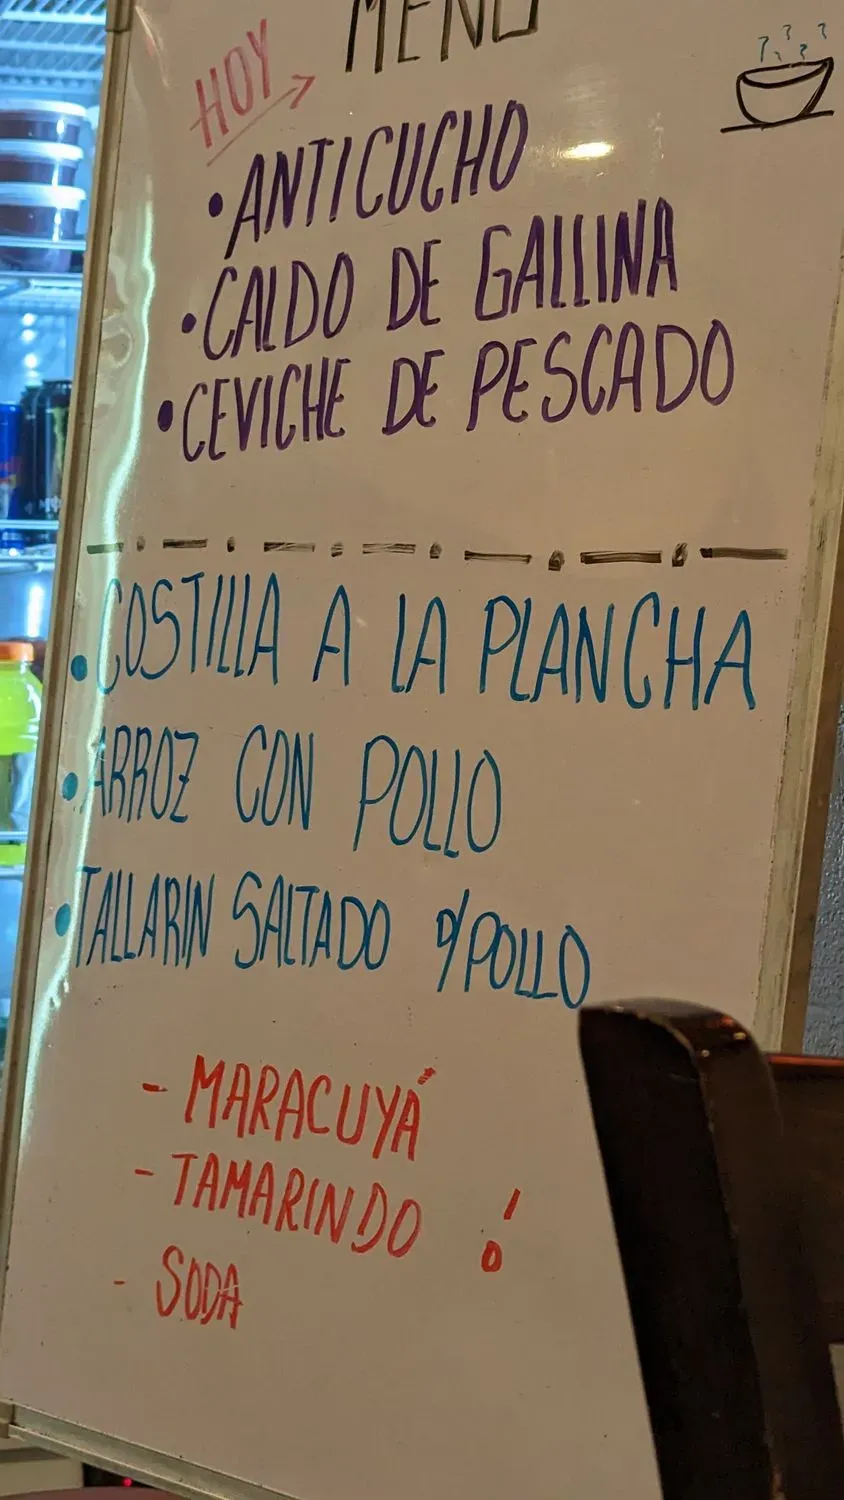 MENÚ
HOY
• ANTICUCHO
• CALDO DE GALLINA
• CEVICHE DE PESCADO
• COSTILLA A LA PLANCHA
• ARROZ CON POLLO
• TALLARIN SALTADO d/POLLO
- MARACUYÁ
- TAMARINDO !
- SODA